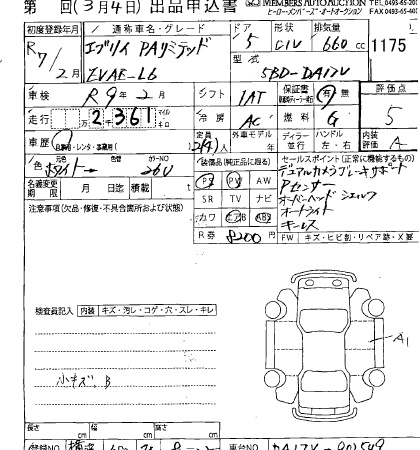 第 回(3月4日)出品申込書 MEMBERS AUTO AUCTION TEL 0493-65-200
ヒーロー・メンバーズ・オートオークション FAX 0493-65-440
初度登録年月 通称車名・グレード ドア 形状 排気量
R7/2月 エブリイ PAリミテッド 5 CIV 660cc 1175
型式
ZVAE-L6 5BD-DA17V
車検 R9年2月 シフト IAT 保証書 有 無 評価点
走行 2,361 マイル キロ 冷房 AC 燃料 G 5
車歴 自家用・レンタ・事業用 定員 2(4)人 外車モデル 年 ディーラー 並行 ハンドル 左・右 内装評価 A
色 元色 ホワイト カラーNO 26U
名義変更期限 月 日迄 積載 t
装備品(純正品に限る)
PS PW AW
SR TV ナビ
カワ エアB ABS
R券 8200円
セールスポイント(正常に機能するもの)
デュアルカメラブレーキサポート
Pセンサー
オーバーヘッドシェルフ
オートライト
キーレス
FW キズ・ヒビ割・リペア跡・X要
注意事項(欠品・修復・不具合箇所および状態)
検査員記入 内装 キズ・汚レ・コゲ・穴・スレ・キレ
小キズ、B
A1
長さ cm 幅 cm 高さ cm
登録NO 車台NO DA17V-902549